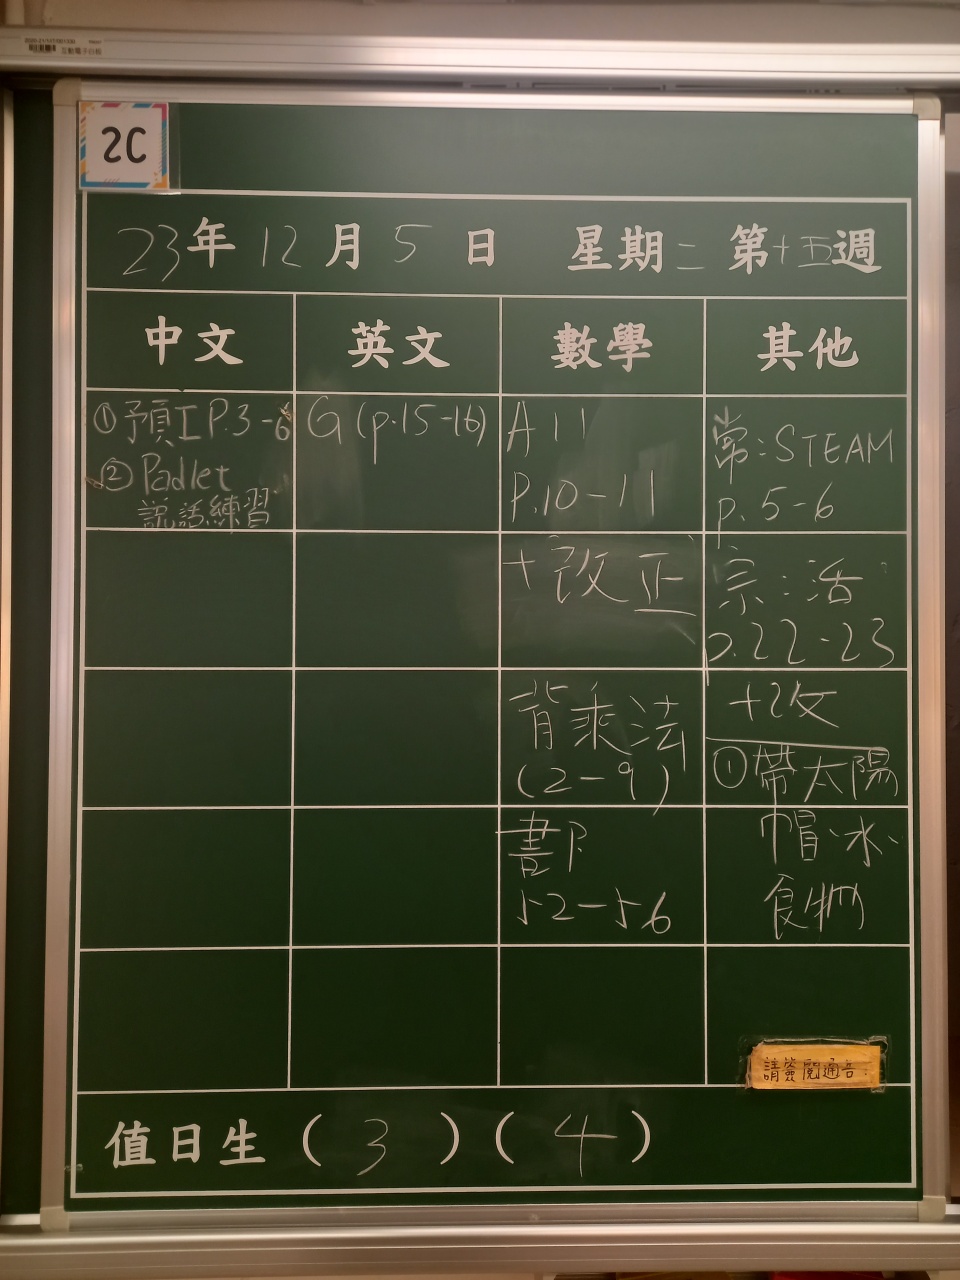 互動電子白板
2C
23年12月5日 星期二 第十五週
中文 英文 數學 其他
①預工P.3-6
②Padlet
說話練習
G(p.15-16)
A11
P.10-11
+改正
背乘法
(2-9)
書P.
52-56
常:STEAM
p.5-6
宗:活
p.22-23
+改
①帶太陽
帽、水、
食物
請簽閱通告
值日生(3)(4)